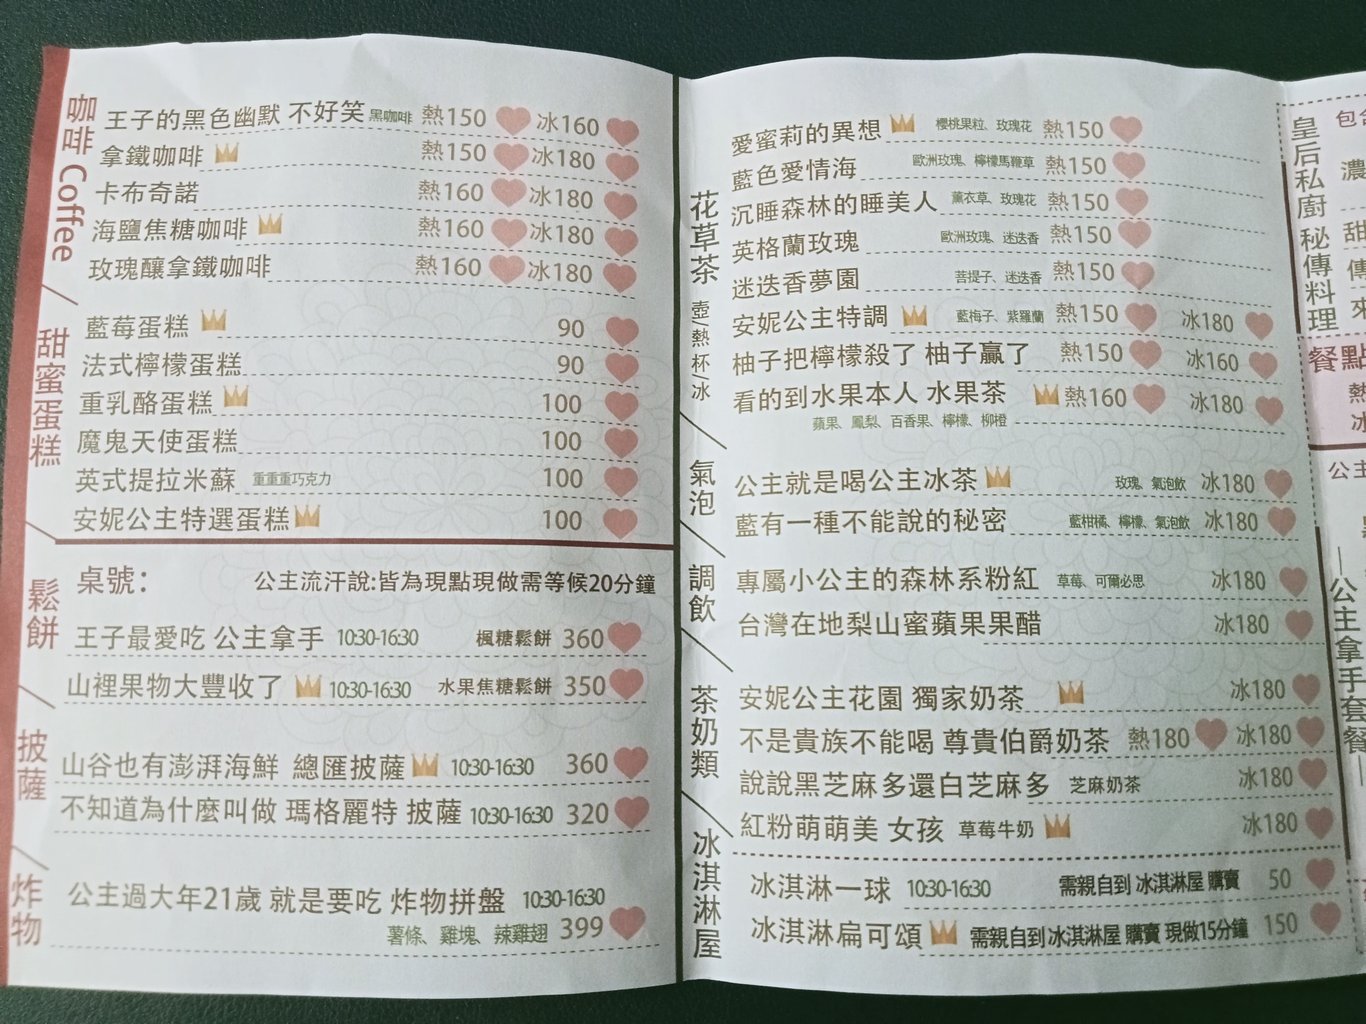 咖啡 Coffee
王子的黑色幽默 不好笑 黑咖啡 熱150 冰160
拿鐵咖啡 熱150 冰180
卡布奇諾 熱160 冰180
海鹽焦糖咖啡 熱160 冰180
玫瑰釀拿鐵咖啡 熱160 冰180
甜蜜蛋糕
藍莓蛋糕 90
法式檸檬蛋糕 90
重乳酪蛋糕 100
魔鬼天使蛋糕 100
英式提拉米蘇 重重重巧克力 100
安妮公主特選蛋糕 100
桌號： 公主流汗說:皆為現點現做需等候20分鐘
鬆餅
王子最愛吃 公主拿手 10:30-16:30 楓糖鬆餅 360
山裡果物大豐收了 10:30-16:30 水果焦糖鬆餅 350
披薩
山谷也有澎湃海鮮 總匯披薩 10:30-16:30 360
不知道為什麼叫做 瑪格麗特 披薩 10:30-16:30 320
炸物
公主過大年21歲 就是要吃 炸物拼盤 10:30-16:30
薯條、雞塊、辣雞翅 399
花草茶 壺/熱 杯/冰
愛蜜莉的異想 櫻桃果粒、玫瑰花 熱150
藍色愛情海 歐洲玫瑰、檸檬馬鞭草 熱150
沉睡森林的睡美人 薰衣草、玫瑰花 熱150
英格蘭玫瑰 歐洲玫瑰、迷迭香 熱150
迷迭香夢園 菩提子、迷迭香 熱150
安妮公主特調 藍梅子、紫羅蘭 熱150 冰180
柚子把檸檬殺了 柚子贏了 熱150 冰160
看的到水果本人 水果茶 熱160 冰180
蘋果、鳳梨、百香果、檸檬、柳橙
氣泡
公主就是喝公主冰茶 玫瑰、氣泡飲 冰180
藍有一種不能說的秘密 藍柑橘、檸檬、氣泡飲 冰180
調飲
專屬小公主的森林系粉紅 草莓、可爾必思 冰180
台灣在地梨山蜜蘋果果醋 冰180
茶奶類
安妮公主花園 獨家奶茶 冰180
不是貴族不能喝 尊貴伯爵奶茶 熱180 冰180
說說黑芝麻多還白芝麻多 芝麻奶茶 冰180
紅粉萌萌美 女孩 草莓牛奶 冰180
冰淇淋屋
冰淇淋一球 10:30-16:30 需親自到 冰淇淋屋 購賣 50
冰淇淋扁可頌 需親自到 冰淇淋屋 購賣 現做15分鐘 150
皇后私廚 秘傳料理
包
濃
甜
傳
來
餐點
熱
冰
公主
—公主拿手套餐—